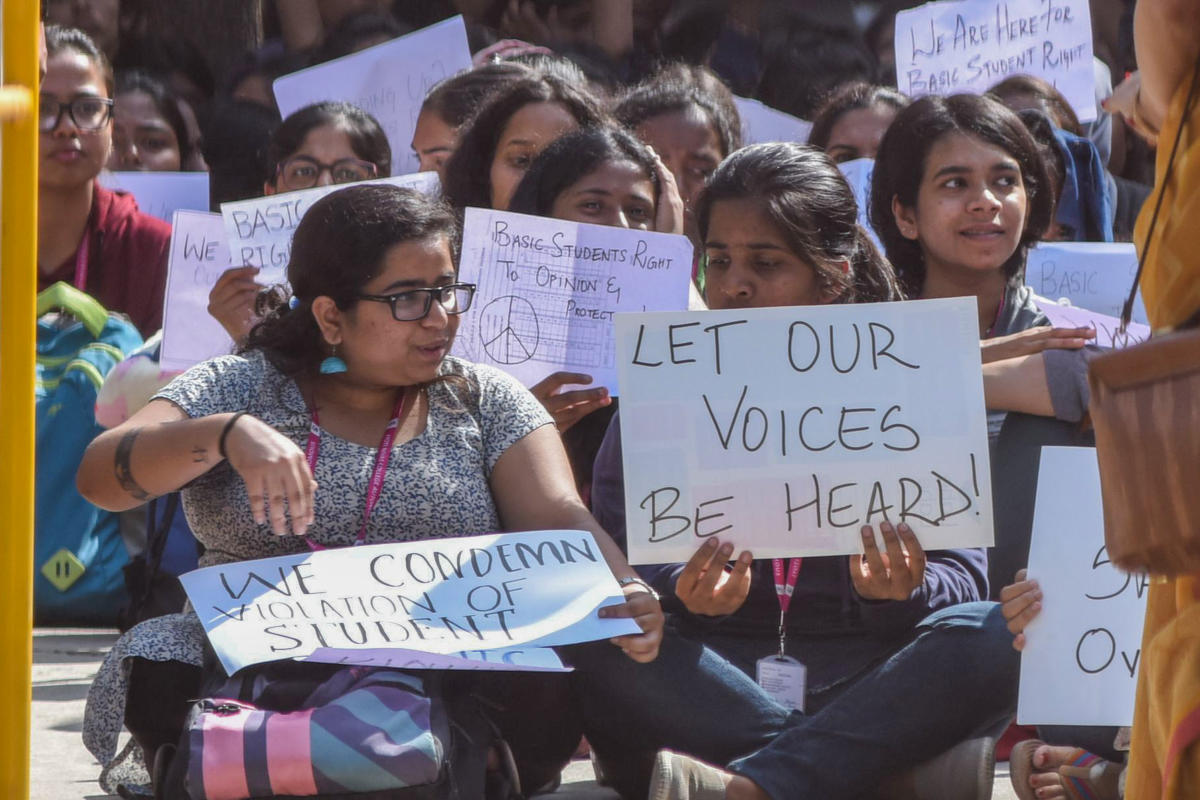 WE ARE HERE FOR
BASIC STUDENT RIGHT
BASIC
RIG
WE
BASIC STUDENTS RIGHT
TO OPINION &
PROTECT
BASIC
LET OUR
VOICES
BE HEARD!
WE CONDEMN
VIOLATION OF
STUDENT